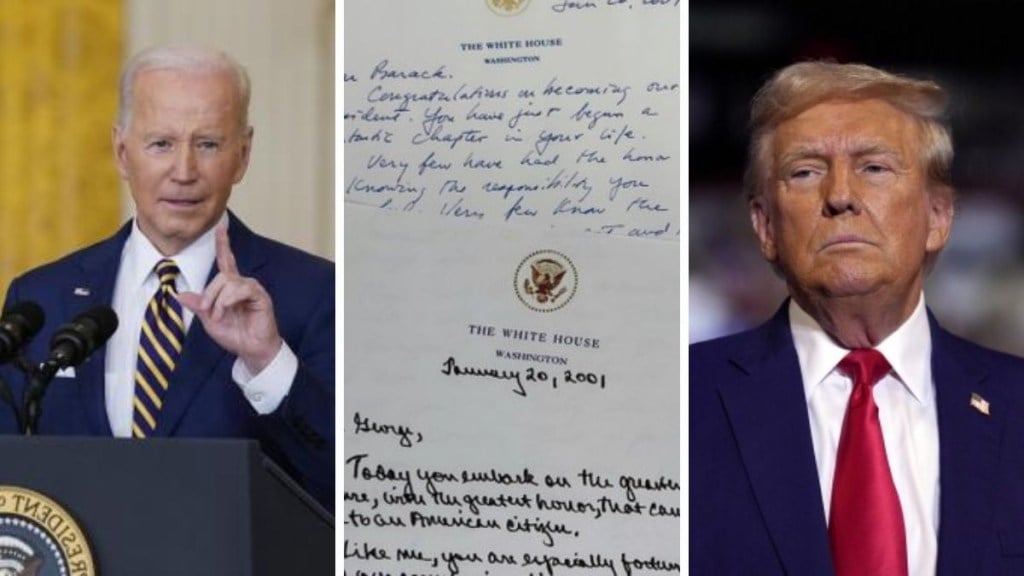 THE WHITE HOUSE
WASHINGTON
Barack.
Congratulations on becoming our
You have just begun a
Chapter in your life.
Very few have had the honor
Knowing the responsibility you
Very few know the
and
THE WHITE HOUSE
WASHINGTON
January 20, 2001
George,
Today you embark on the
with the greatest honor, that can
to an American citizen.
Like me, you are especially
PRESIDENT O